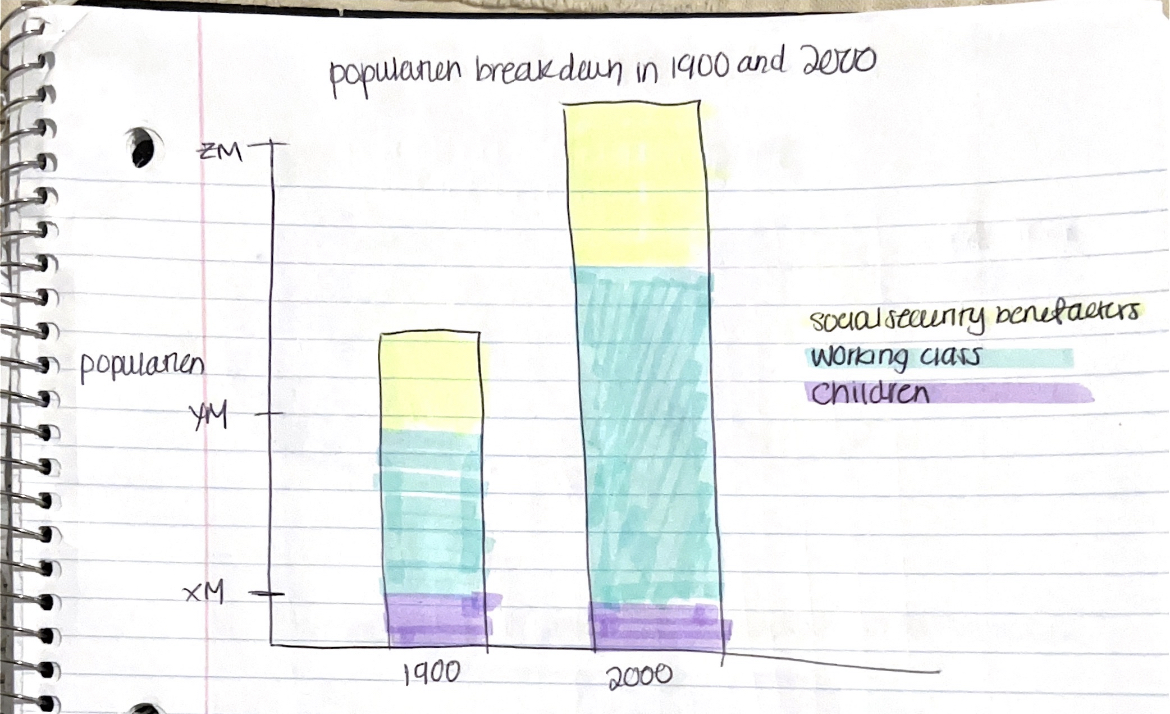 population breakdown in 1900 and 2000
ZM
population
YM
XM
1900
2000
social security benefactors
working class
Children